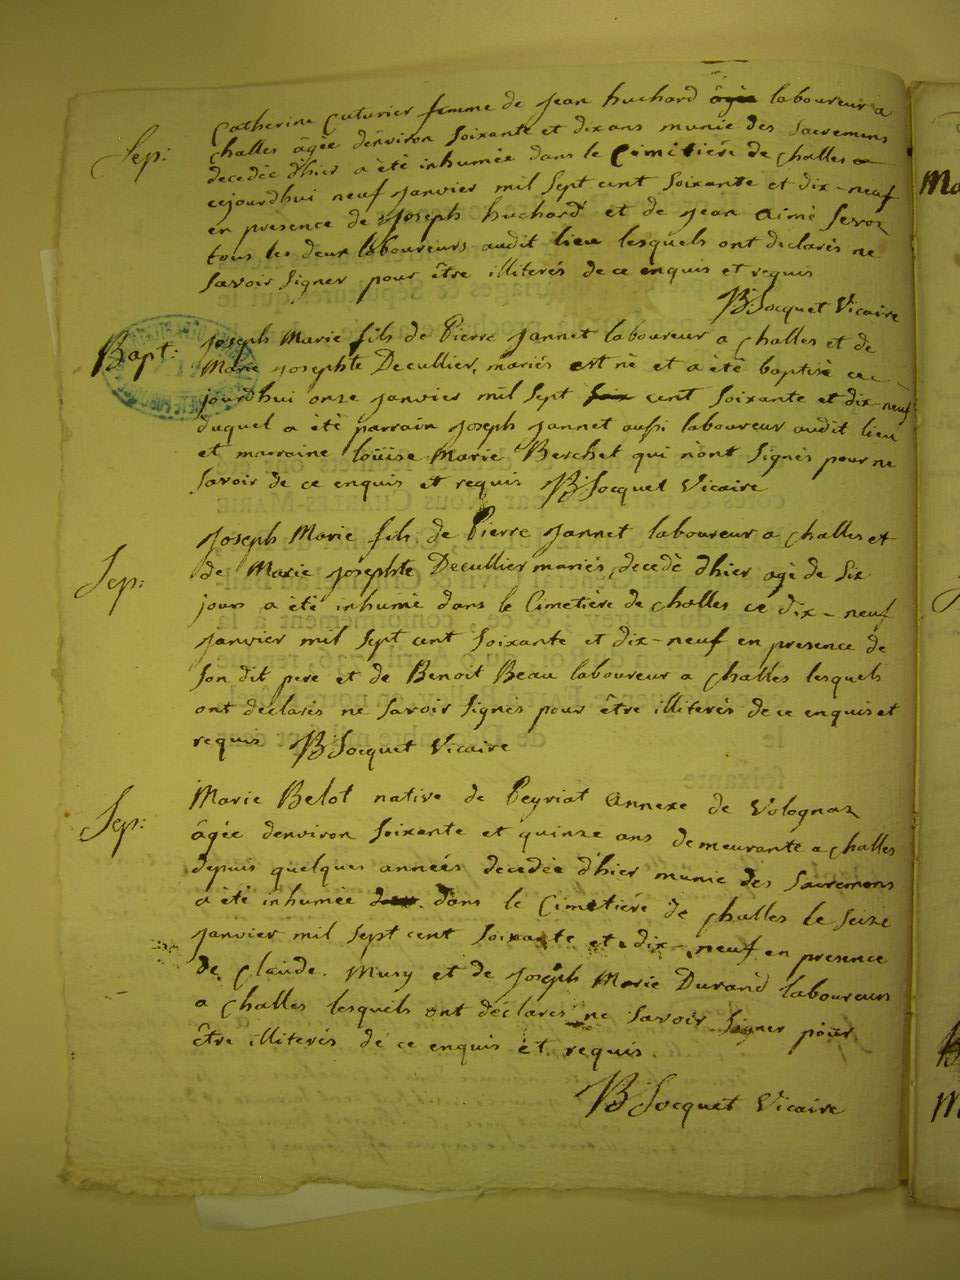 Sep:
Catherine Cuturier femme de jean huchard âgée laboureur a
challes âgée d'environ soixante et dix ans munie des sacremens
decedée d'hier a été inhumée dans le Cimitiére de challes
cejourdhui neuf janvier mil sept cent soixante et dix-neuf
en presence de joseph huchard et de jean aimé
tous les deux laboureurs audit lieu lesquels ont declarés ne
savoir signer pour être illiterés de ce enquis et requis
B Socquet Vicaire
Bapt:
joseph Marie fils de Pierre jannet laboureur a challes et de
Marie josephte Decullier, mariés est né et a été baptisé ce
jourdhui onze janvier mil sept cent soixante et dix-neuf
duquel a été parrain joseph jannet aussi laboureur audit lieu
et marraine loüise Marie Berchet qui n'ont signés pour ne
savoir de ce enquis et requis B Socquet Vicaire
Sep:
joseph Marie fils de Pierre jannet laboureur a challes et
de Marie josephte Decullier mariés, decedé d'hier agé de six
jours a été inhumé dans le Cimetière de challes ce dix-neuf
janvier mil sept cent soixante et dix-neuf en presence de
son dit pere et de Benoit Beau laboureur a challes lesquels
ont declarés ne savoir signés pour être illiterés de ce enquis et
requis B Socquet Vicaire
Sep:
Marie Belot native de Peyriat annexe de Volognaz
âgée d'environ soixante et quinze ans demeurante a challes
depuis quelques annéés decedée d'hier munie des sacremens
a été inhumée dans le Cimetiére de challes le seize
janvier mil sept cent soixante et dix-neuf en presence
de Claude Musy et de joseph Marie Durand laboureurs
a challes lesquels ont déclarés ne savoir signer pour
être illiterés de ce enquis et requis.
B Socquet Vicaire